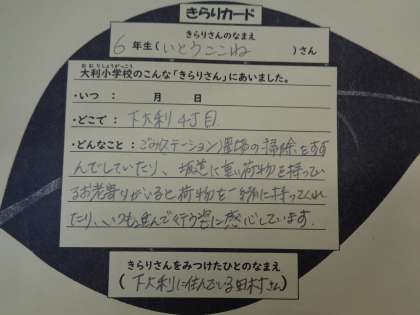 きらりカード
きらりさんのなまえ
6年生(いとうここね)さん
おおりしょうがっこう
大利小学校のこんな「きらりさん」にあいました。
・いつ： 月 日
・どこで： 下大利4丁目
・どんなこと：ごみステーション置場の掃除をすす
んでしていたり、坂道に重い荷物を持ってい
るお年寄りがいると荷物を一緒に持ってくれ
たり、いつも進んで行う姿に感心しています。
きらりさんをみつけたひとのなまえ
(下大利に住んでいる田村さん)